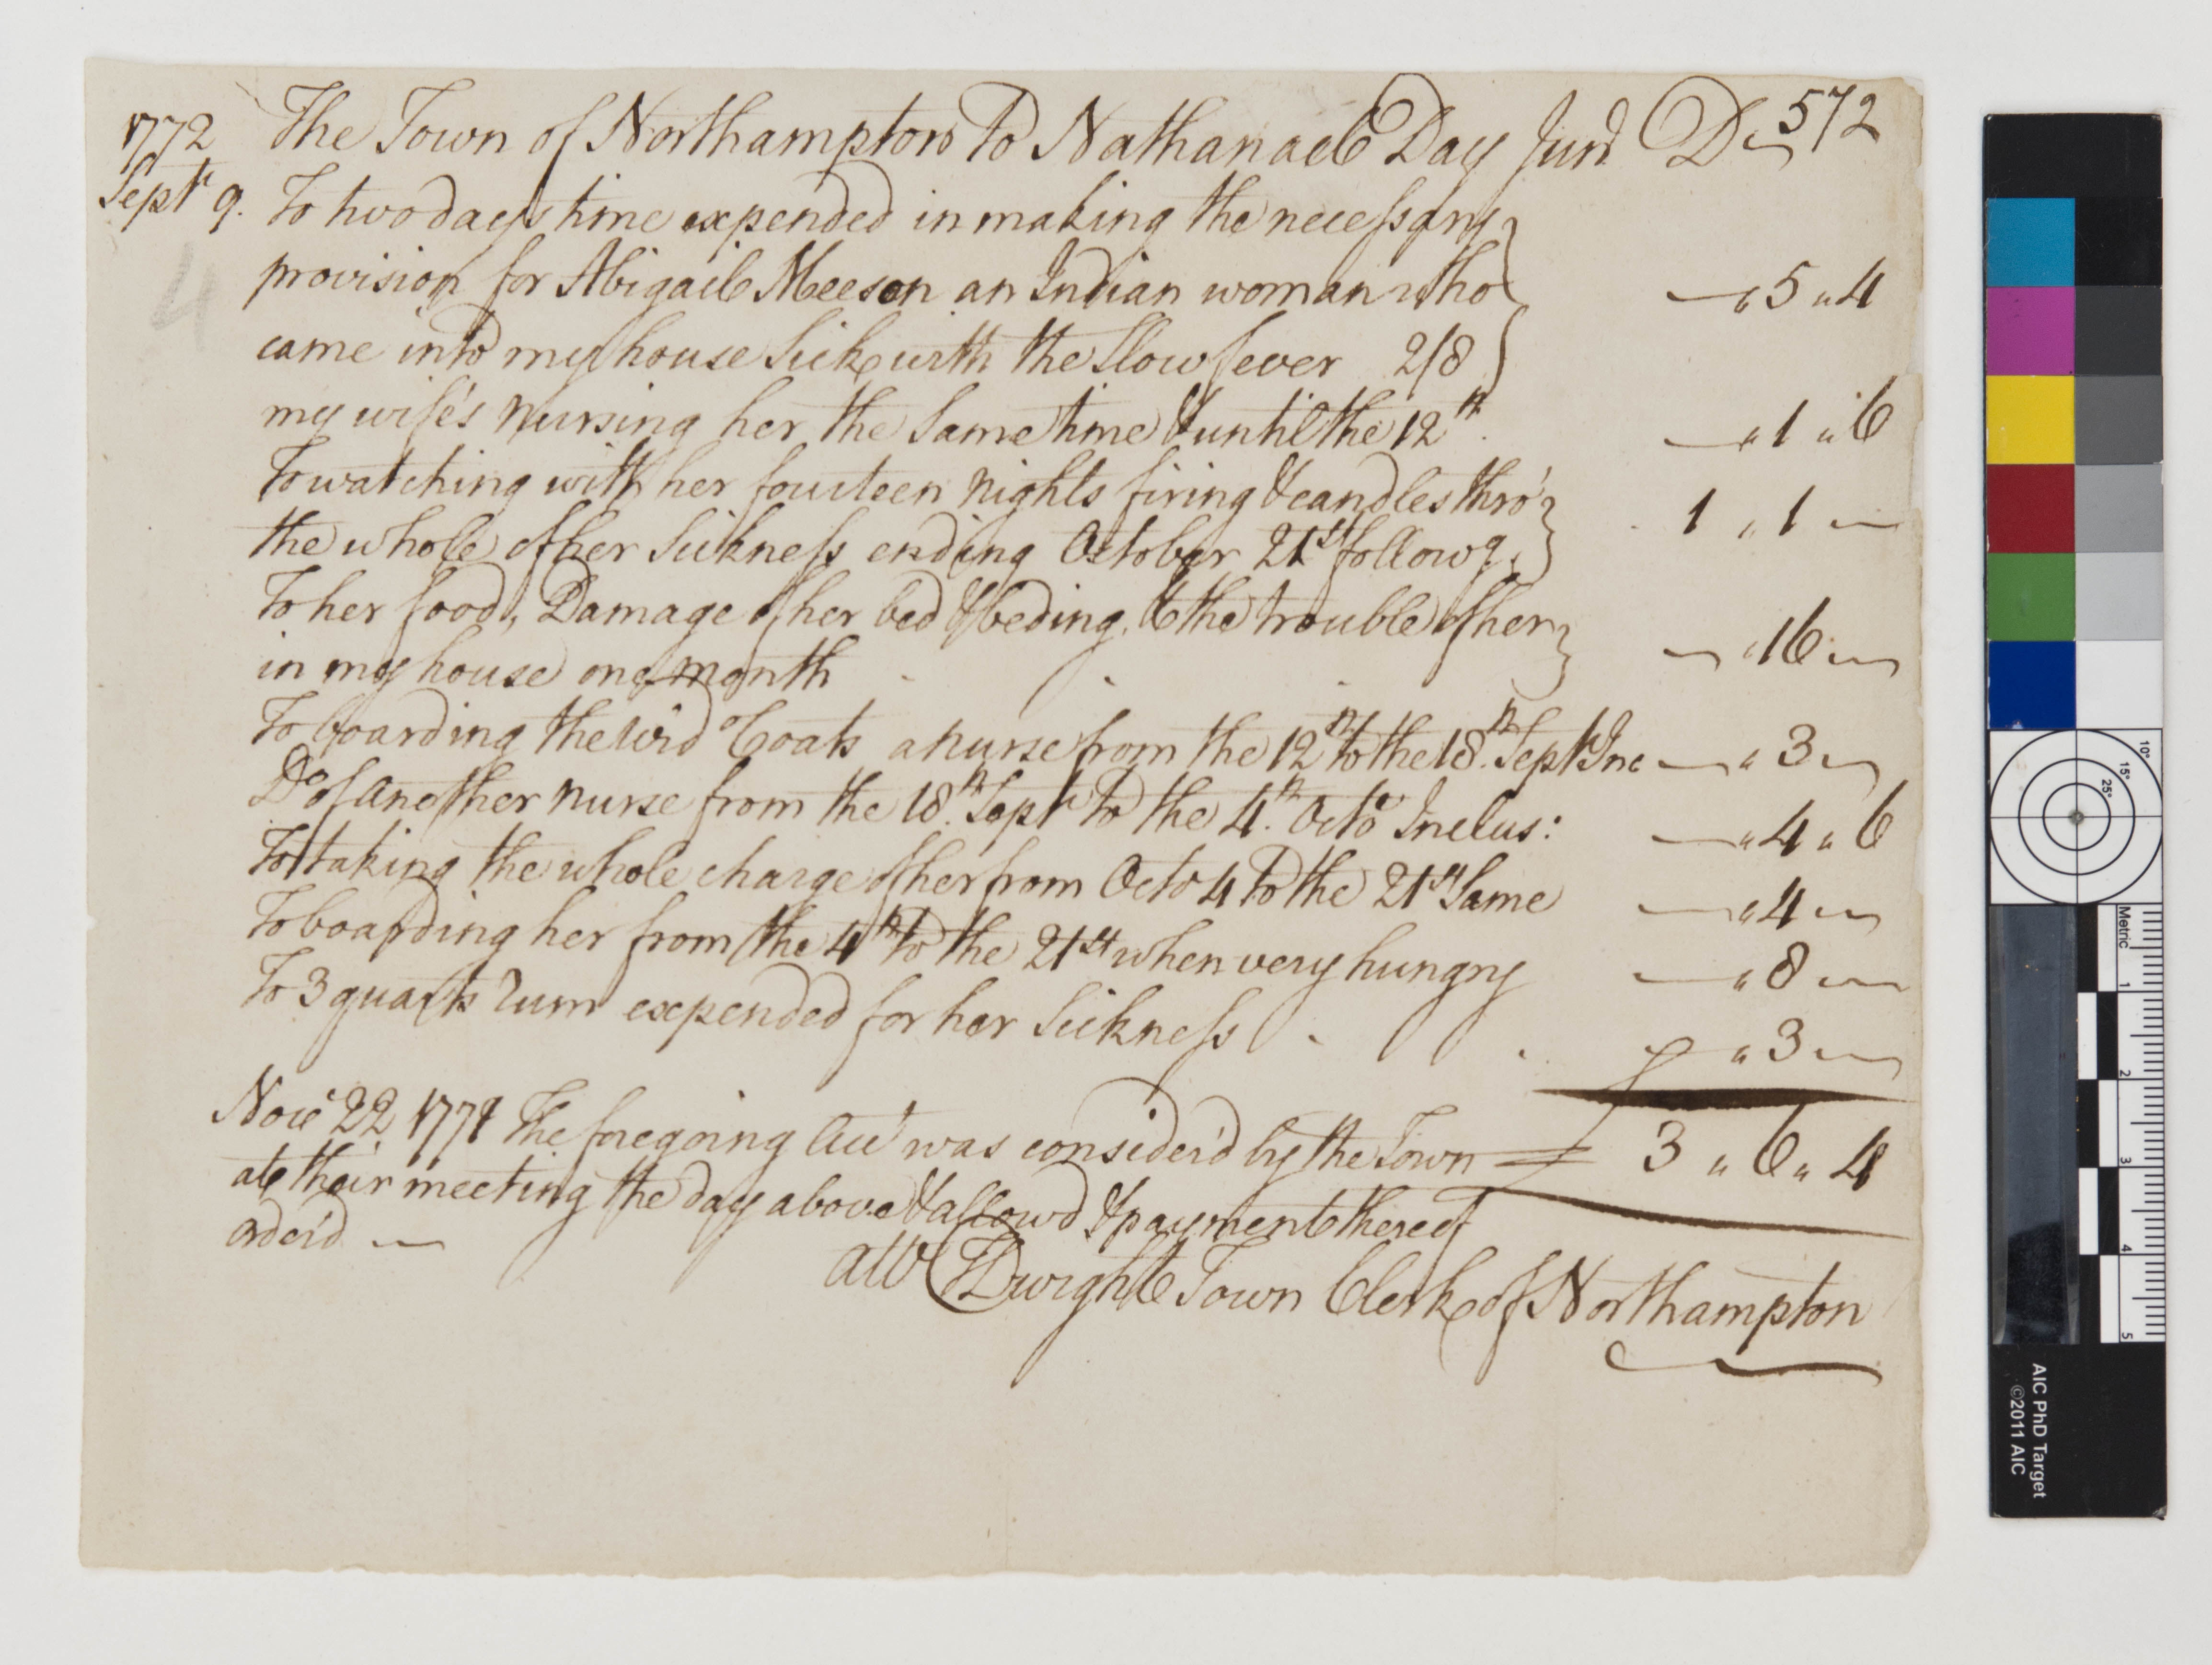 572
1772 The Town of Northampton to Nathanael Day Junr Dr
Septr 9. To two days time expended in making the necessary
provision for Abigail Meeson an Indian woman who — " 5 " 4
came into my house Sick with the Slow fever 2/8
my wife's nursing her the Same time & until the 12th. — " 1 " 6
To watching with her fourteen nights firing & candles thro'
the whole of her Sickness ending October 21st followg. 1 " 1 —
To her food, Damage of her bed & beding, & the trouble of her
in my house one month — " 16 —
To boarding the Wid Coats a nurse from the 12th to the 18th. Septr Inc — " 3 —
Do of another nurse from the 18th. Septr to the 4th. Octor Inclus: — " 4 " 6
To taking the whole charge of her from Octo 4 to the 21st Same — " 4 —
To boarding her from the 4th to the 21st when very hungry — " 8 —
To 3 quarts Rum expended for her Sickness " 3 —
Nov 22 1778 The foregoing Acct was consider'd by the Town 3 " 6 " 4
at their meeting the day above & allowd & payment thereof
order'd —
att Dwight Town Clerk of Northampton
4
10°
15°
25°
Metric
1
2
3
4
5
AIC PhD Target
©2011 AIC